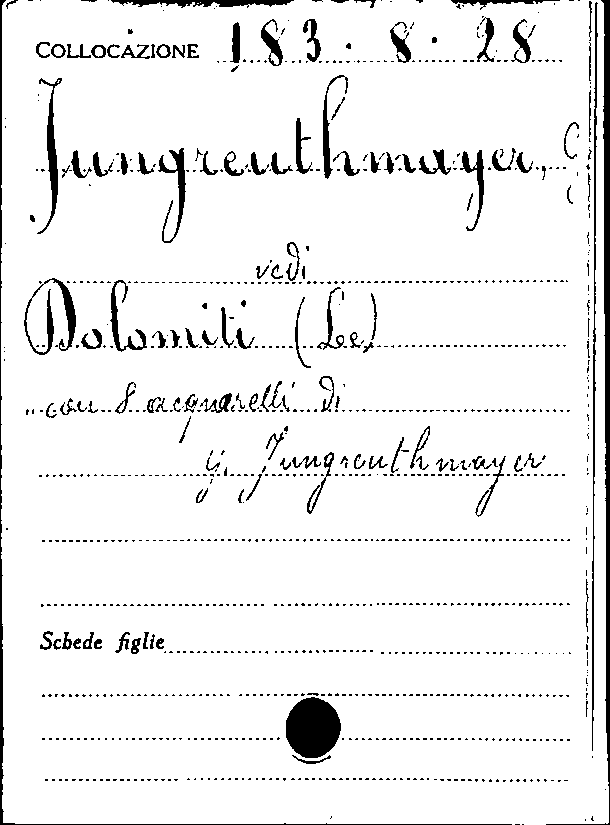 COLLOCAZIONE 183.8.28
Jungreuthmayer, G
vedi
Dolomiti (Le)
..con 8 acquarelli di
G. Jungreuthmayer
Schede figlie